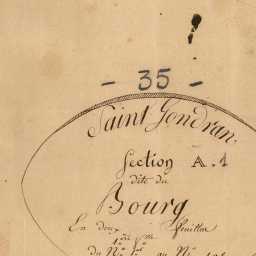 - 35 -
Saint Gondran.
Section A.1
dite du
Bourg
En deux feuilles
1ère
du N°